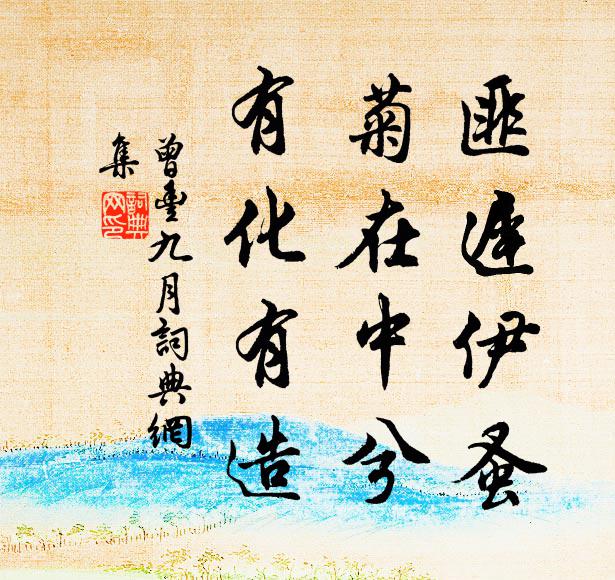 匪遅伊蚤
菊在中兮
有化有造
曾豊九月詞典網
集
詞典
网印